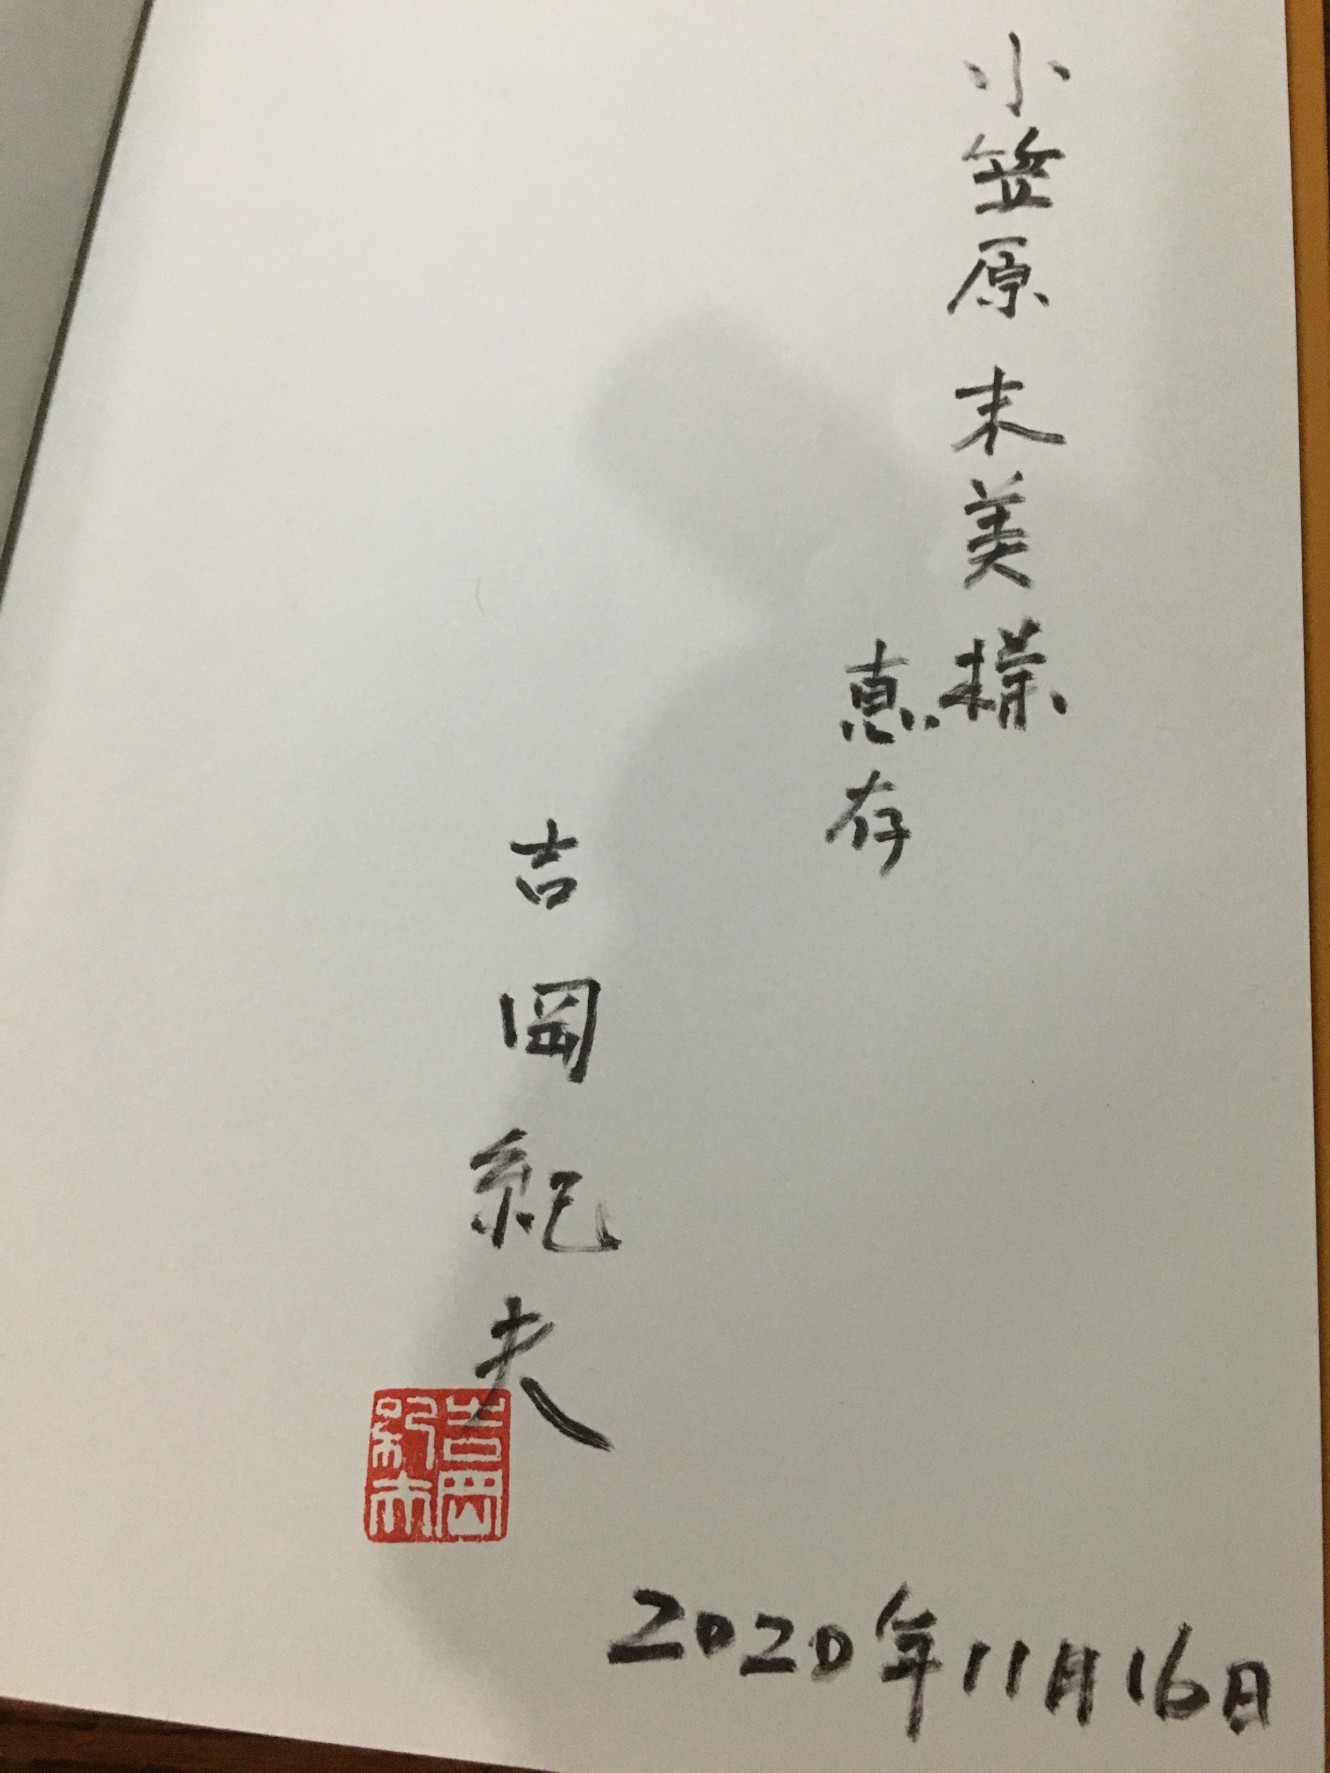 小笠原末美様
恵存
吉岡紀夫
吉岡紀夫
2020年11月16日